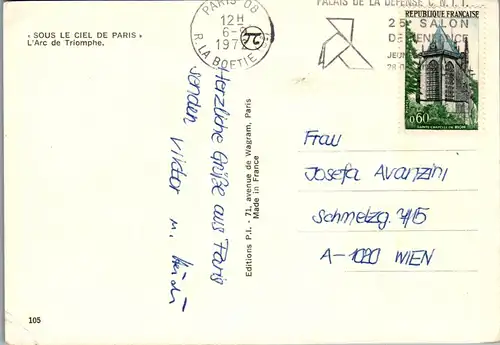 « SOUS LE CIEL DE PARIS »
L'Arc de Triomphe.
PARIS 08
12H
6-8
R. LA BOETIE
PALAIS DE LA DEFENSE C.N.I.T.
25e SALON
DE
JEU
28
REPUBLIQUE FRANÇAISE
0,60
SAINTE-CHAPELLE DE RIOM
Herzliche Grüße aus Paris
senden Viktor u. Heidi
Editions P.I. - 71, avenue de Wagram, Paris
Made in France
Frau
Josefa Avanzini
Schmelzg. 7/15
A-1020 WIEN
105